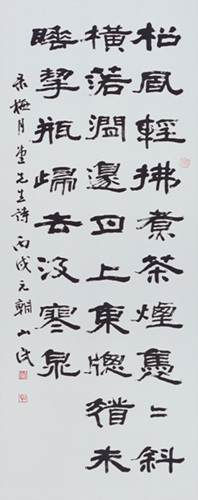 松風輕拂煮茶煙裊〻斜
橫落澗邊月上東牕猶未
睡挈瓶歸去汲寒泉
录梅月堂先生詩 丙戌元朝 山民